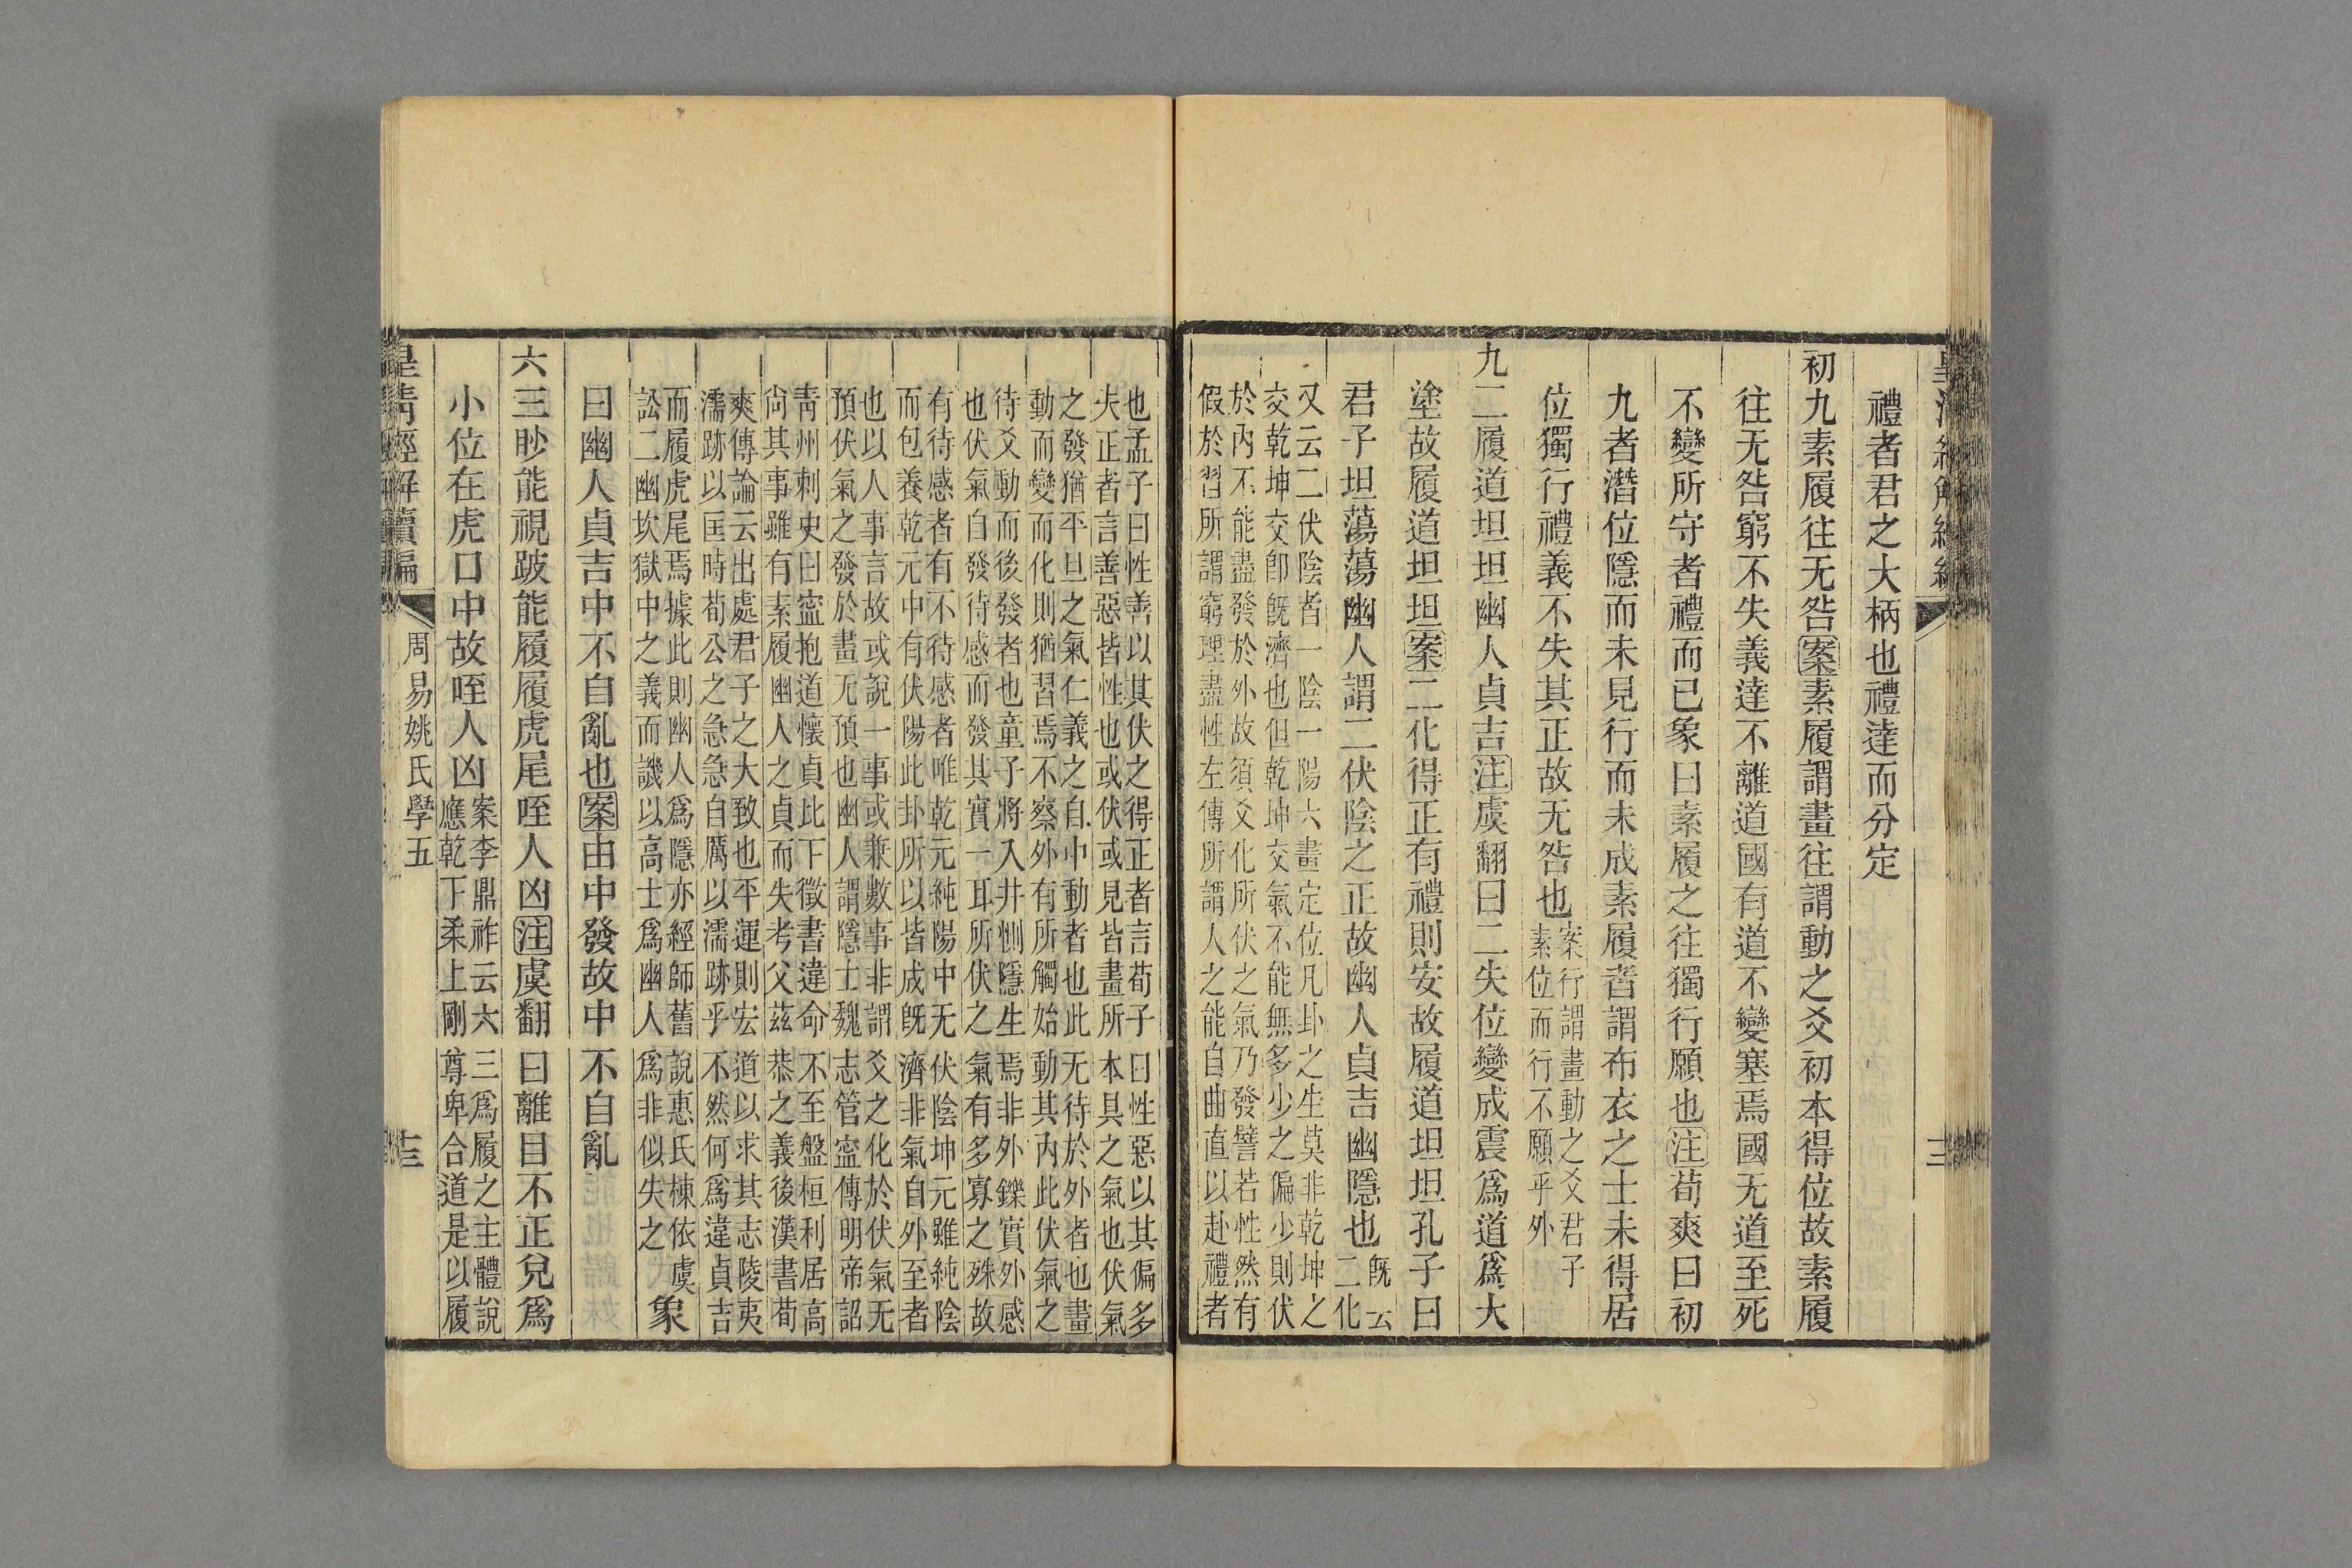 禮者君之大柄也禮達而分定
初九素履往无咎案素履謂畫往謂動之爻初本得位故素履
往无咎窮不失義達不離道國有道不變塞焉國无道至死
不變所守者禮而已象曰素履之往獨行願也注荀爽曰初
九者潛位隱而未見行而未成素履者謂布衣之士未得居
位獨行禮義不失其正故无咎也案行謂畫動之爻君子
素位而行不願乎外
九二履道坦坦幽人貞吉注虞翻曰二失位變成震爲道爲大
塗故履道坦坦案二化得正有禮則安故履道坦坦孔子曰
君子坦蕩蕩幽人謂二伏陰之正故幽人貞吉幽隱也既云
二化
又云二伏陰者一陰一陽六畫定位凡卦之生莫非乾坤之
交乾坤交卽既濟也但乾坤交氣不能無多少之偏少則伏
於內不能盡發於外故須爻化所伏之氣乃發譬若性然有
假於習所謂窮理盡性左傳所謂人之能自曲直以赴禮者
也孟子曰性善以其伏之得正者言荀子曰性惡以其偏多
夫正者言善惡皆性也或伏或見皆畫所本具之氣也伏氣
之發猶平旦之氣仁義之自中動者也此无待於外者也畫
動而變而化則猶習焉不察外有所觸始動其內此伏氣之
待爻動而後發者也童子將入井惻隱生焉非外鑠實外感
也伏氣自發待感而發其實一耳所伏之氣有多寡之殊故
有待感者有不待感者唯乾元純陽中无伏陰坤元雖純陰
而包養乾元中有伏陽此卦所以皆成既濟非氣自外至者
也以人事言故或說一事或兼數事非謂爻之化於伏氣无
預伏氣之發於畫无預也幽人謂隱士魏志管寍傳明帝詔
靑州刺史曰寍抱道懷貞比下徵書違命不至盤桓利居高
尙其事雖有素履幽人之貞而失考父茲恭之義後漢書荀
爽傳論云出處君子之大致也平運則宏道以求其志陵夷
濡跡以匡時荀公之急急自厲以濡跡乎不然何爲違貞吉
而履虎尾焉據此則幽人爲隱亦經師舊說惠氏棟依虞
訟二幽坎獄中之義而譏以高士爲幽人爲非似失之象
曰幽人貞吉中不自亂也案由中發故中不自亂
六三眇能視跛能履履虎尾咥人凶注虞翻曰離目不正兌爲
小位在虎口中故咥人凶案李鼎祚云六三爲履之主體說
應乾下柔上剛尊卑合道是以履
皇淸經解續編
周易姚氏學五
十三